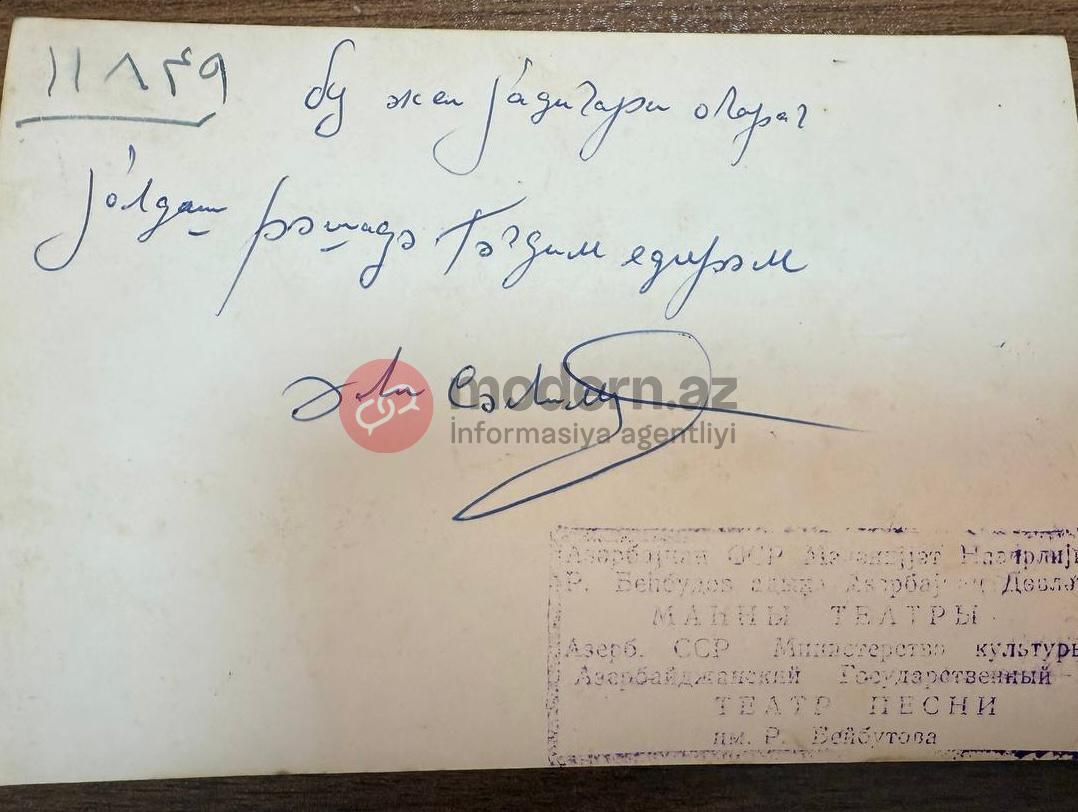 бу жел јадиҝари олараг
јолдаш Рәшадә Тәгдим едирәм
Әли Сәлими
modern.az
informasiya agentliyi
Азербајҹан ССР Мәдәнијјәт Назирлији
Р. Бейбудов адына Азәрбајҹан Дөвлә
МАҺНЫ ТЕАТРЫ
Азерб. ССР Министерство культуры
Азербайджанский Государственный
ТЕАТР ПЕСНИ
им. Р. Бейбутова